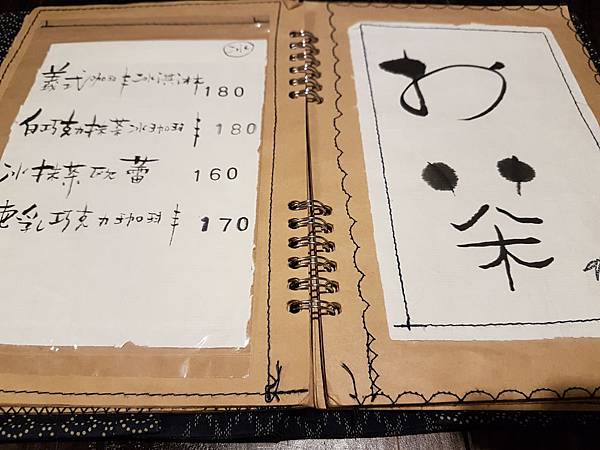 義式咖啡冰淇淋 180
白巧克力抹茶冰咖啡 180
冰抹茶欧蕾 160
鬼乳巧克力咖啡 170
お茶